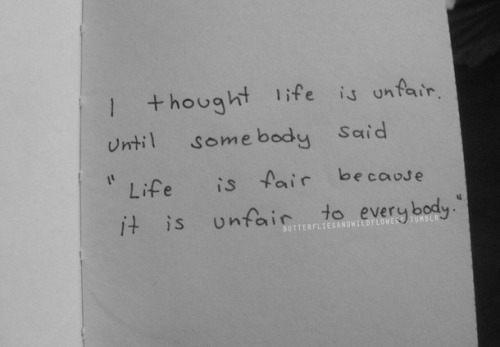 I thought life is unfair.
Until somebody said
"Life is fair because
it is unfair to everybody."
BUTTERFLIESANDWILDFLOWERS TUMBLR